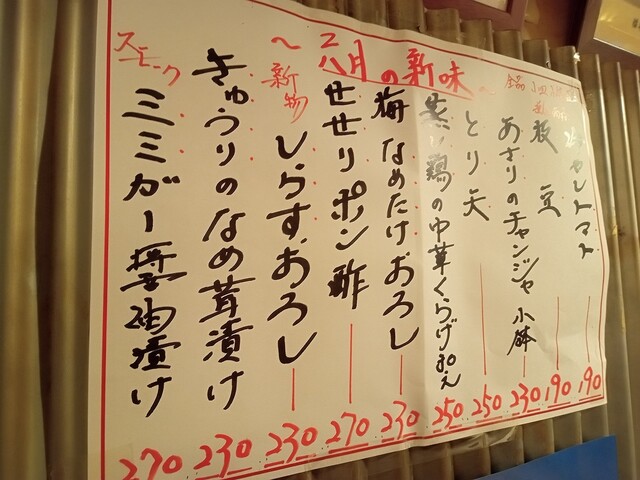 〜六月の新味〜
トマト 190
枝豆 190
あさりのチャンジャ小鉢 230
とり天 250
蒸し鶏の中華くらげ和え 250
梅なめたけおろし 230
せせりポン酢 270
新物 しらすおろし 230
きゅうりのなめ茸漬け 230
スモーク ミミガー醤油漬け 270